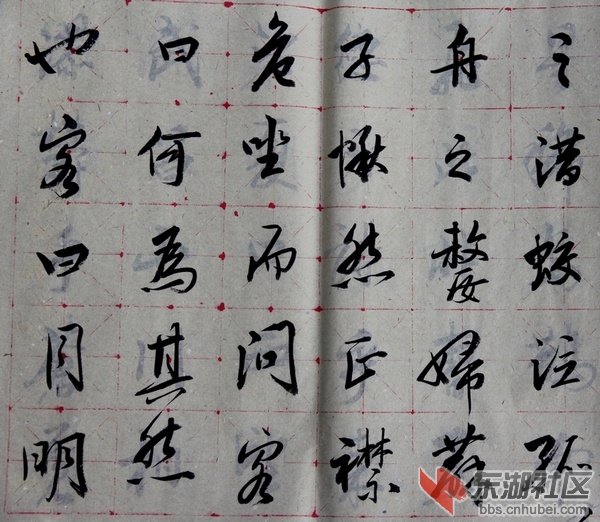 之潜蛟泣孤
舟之嫠婦蘇
子愀然正襟
危坐而问客
曰何為其然
也客曰月明
东湖社区
bbs.cnhubei.com